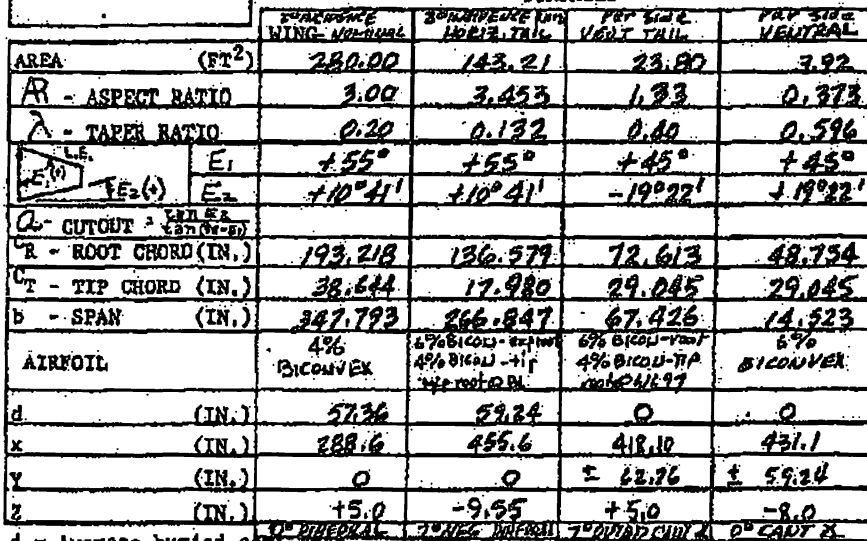 WING NOMINAL HORIZ. TAIL VENT TAIL VENTRAL
AREA (FT²) 280.00 143.21 23.80 7.92
AR - ASPECT RATIO 3.00 3.453 1.33 0.373
λ - TAPER RATIO 0.20 0.132 0.40 0.596
L.E. E₁(+) E₂(+) E₁ +55° +55° +45° +45°
E₂ +10°41' +10°41' -19°22' +19°22'
a - CUTOUT =
CR - ROOT CHORD (IN.) 193.218 136.579 72.613 48.734
CT - TIP CHORD (IN.) 38.644 17.980 29.045 29.045
b - SPAN (IN.) 347.793 266.847 67.426 14.523
AIRFOIL 4% BICONVEX 6% BICON - root 4% BICON - tip 6% BICON - root 4% BICON - TIP 6% BICONVEX
d (IN.) 57.36 59.24 0 0
x (IN.) 288.6 455.6 418.10 431.1
Y (IN.) 0 0 ± 62.76 ± 59.24
Z (IN.) +5.0 -9.55 +5.0 -8.0
0° DIHEDRAL 7° NEG DIHEDRAL 7° OUTBD CANT 0° CANT
d = average buried